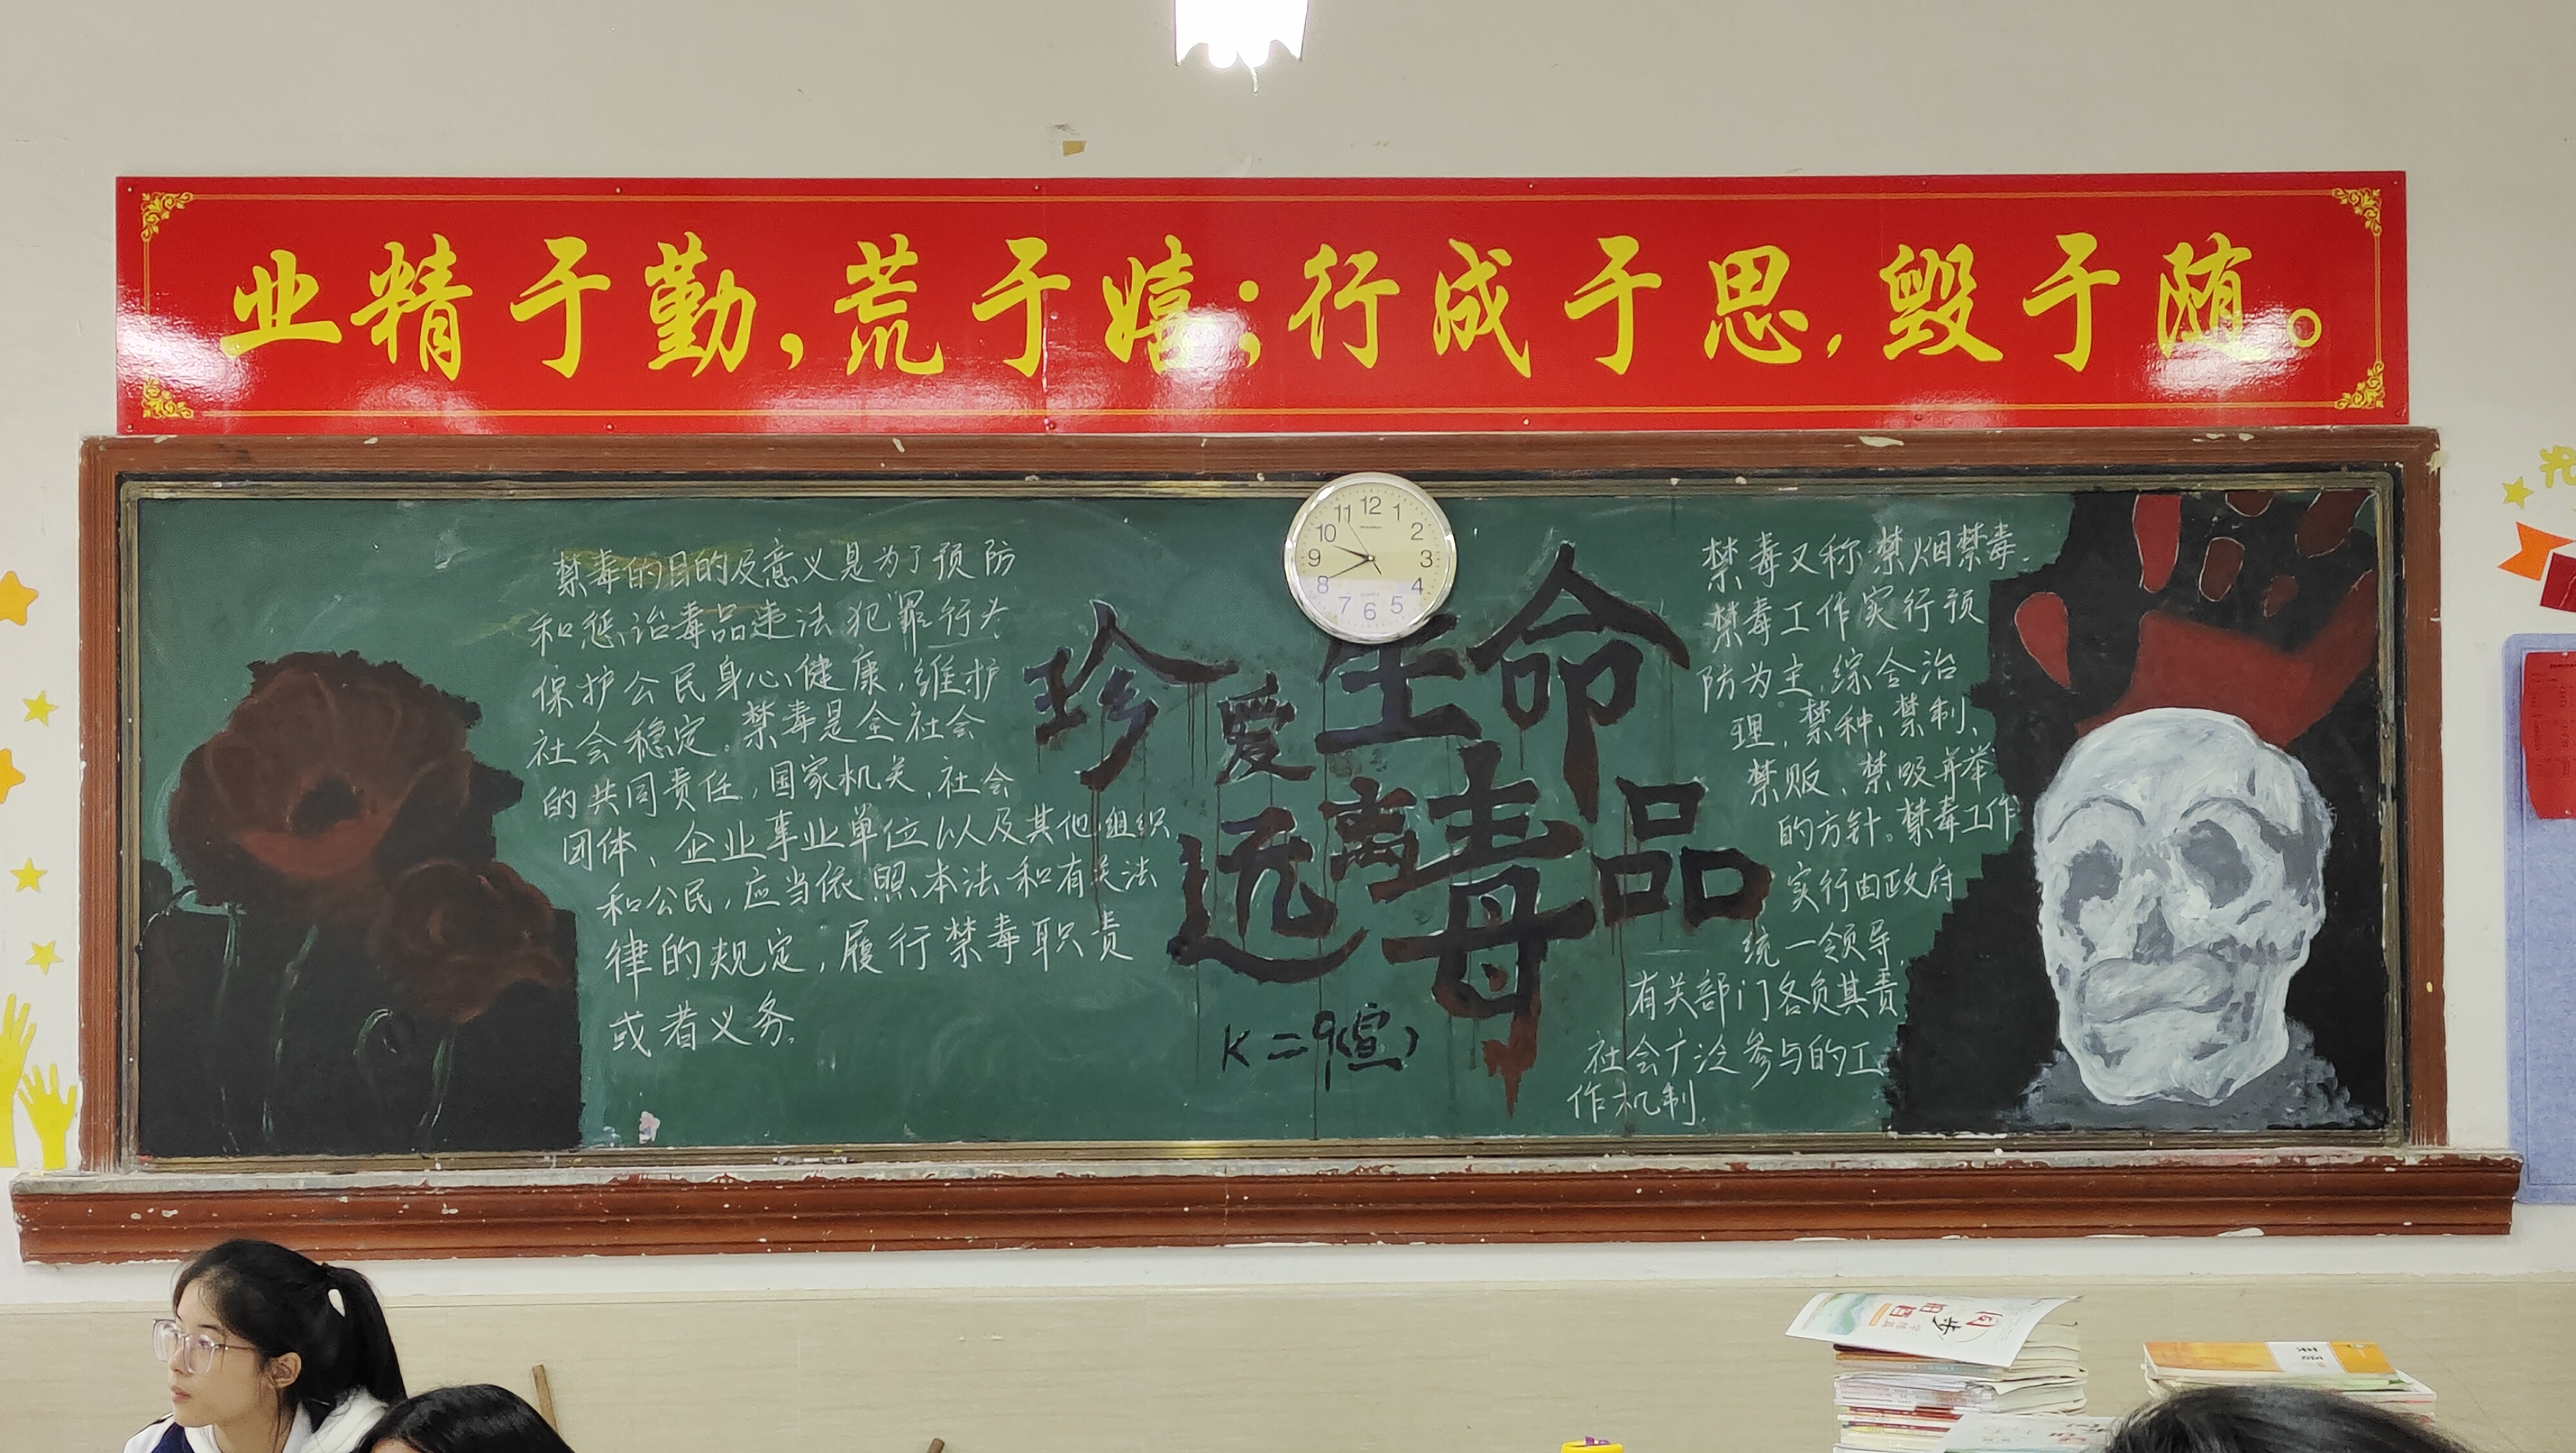 业精于勤,荒于嬉;行成于思,毁于随。
11 12 1
10 2
9 3
8 4
7 6 5
禁毒的目的及意义是为了预防
和惩治毒品违法犯罪行为
保护公民身心健康,维护
社会稳定。禁毒是全社会
的共同责任,国家机关,社会
团体、企业事业单位以及其他组织
和公民,应当依照本法和有关法
律的规定,履行禁毒职责
或者义务.
珍爱生命
远离毒品
禁毒又称禁烟禁毒.
禁毒工作实行预
防为主,综合治
理,禁种,禁制,
禁贩、禁吸并举
的方针。禁毒工作
实行由政府
统一领导,
有关部门各负其责
社会广泛参与的工
作机制.
同步